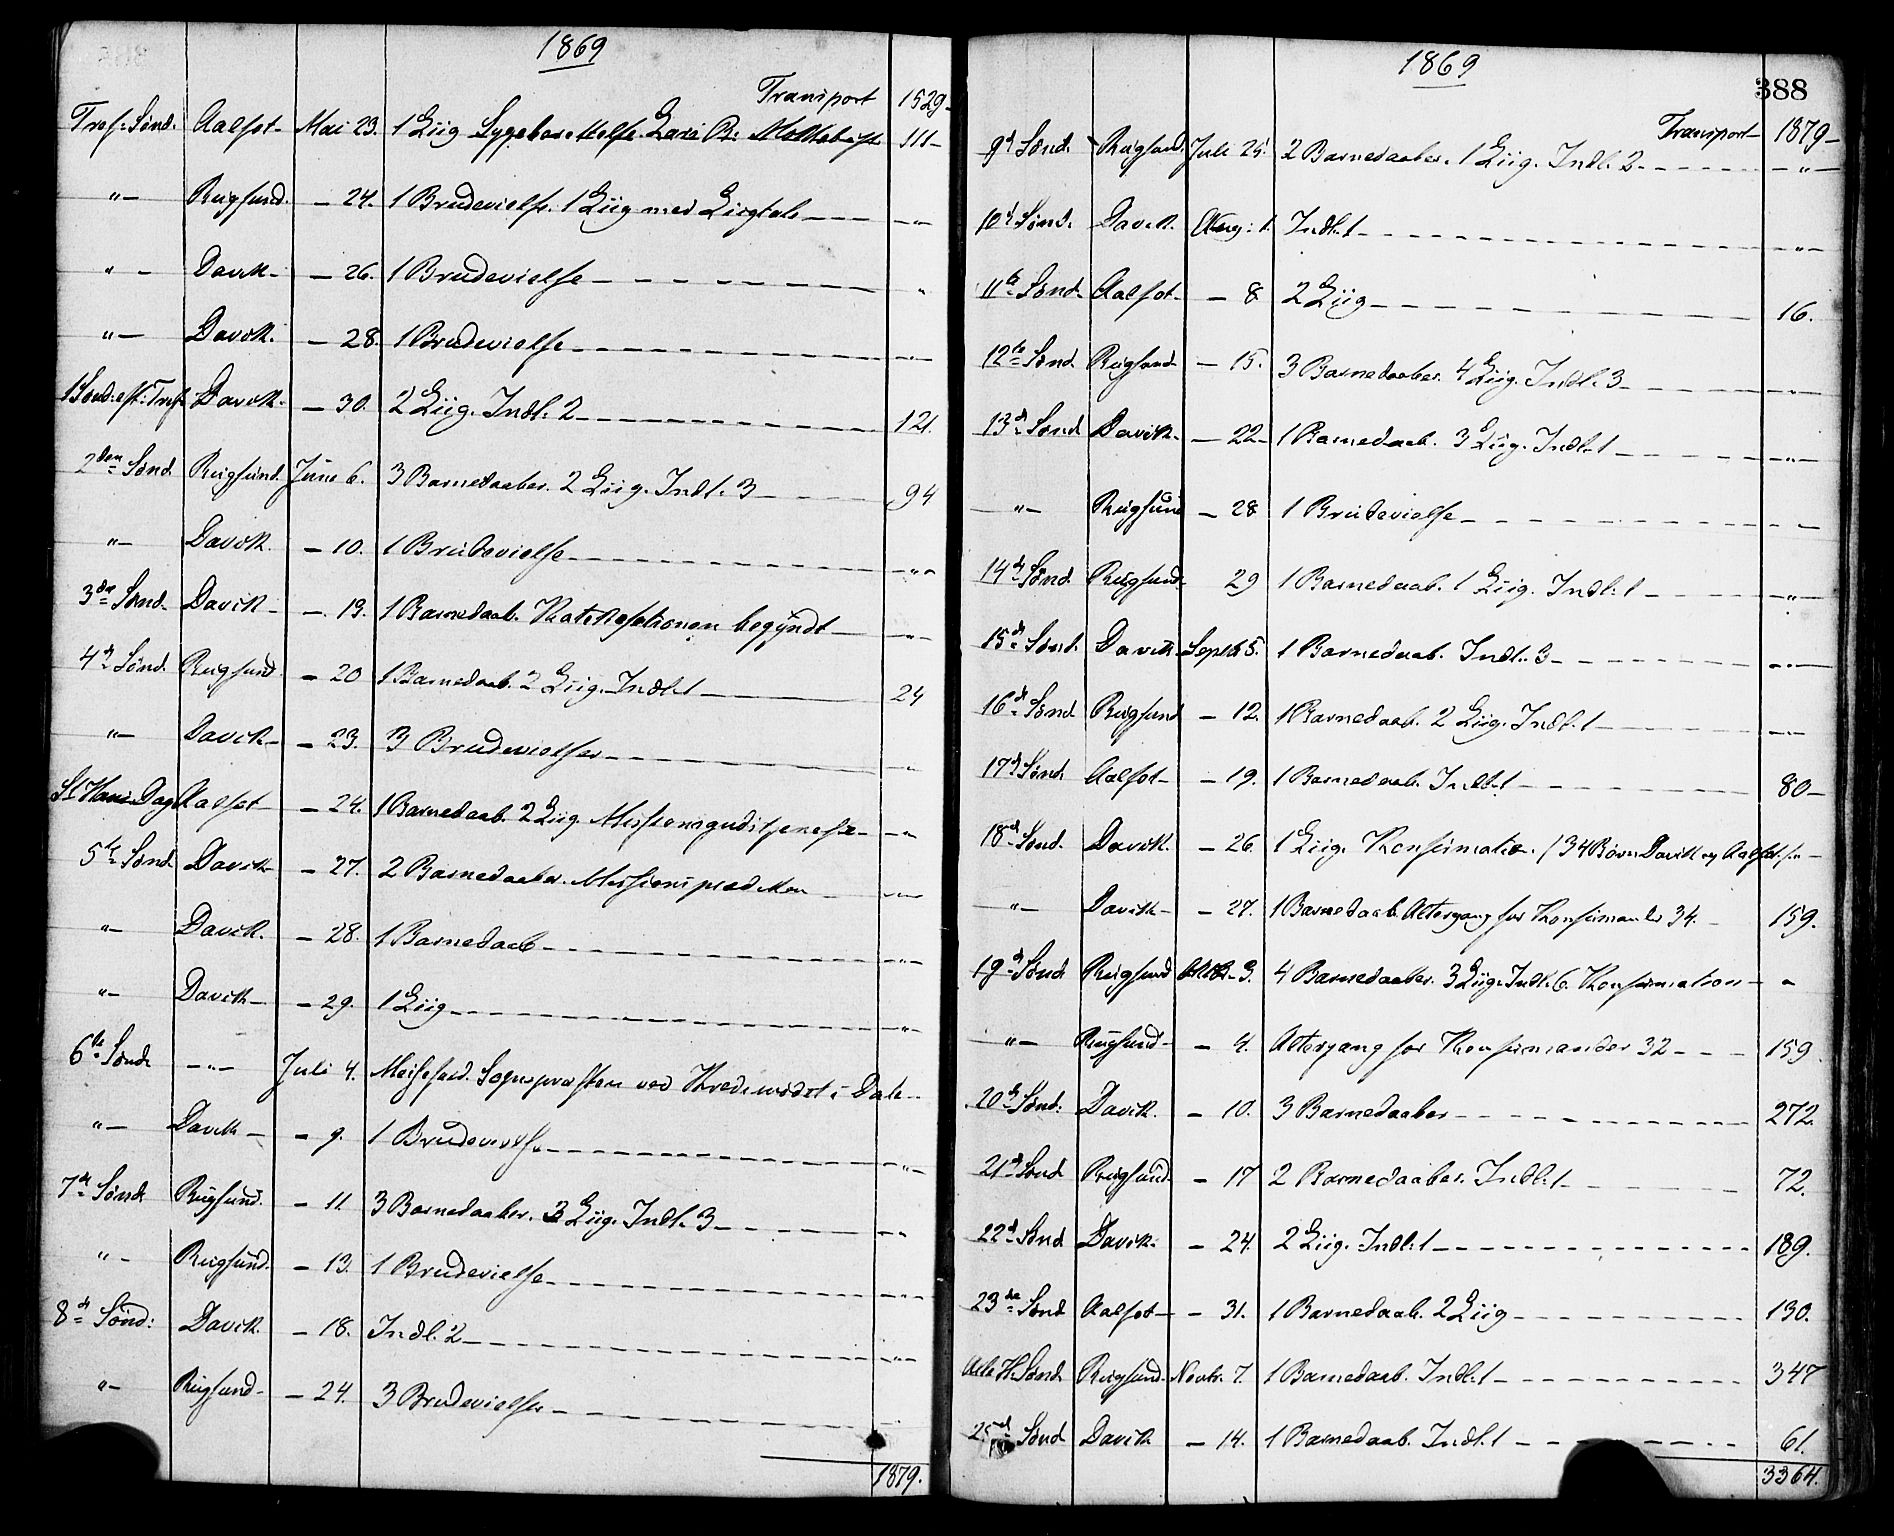 1869
Transport 1529-
Tref: Sønd. Aalfot- Mai 23. 1 Liig Sygeberettelse 111-
"- Rugsund. - 24. 1 Brudevielse. 1 Liig med Liigtale - - "
" - Davik- - 26. 1 Brudevielse - - - - "
"- Davik. - 28. 1 Brudevielse - - - - "
1 Sønd: eft: Tref: Davik. - 30. 2 Liig. Indl: 2 - - - 121.
2den Sønd. Rugsund. Juni 6. 3 Barnedaaber. 2 Liig. Indl. 3 - - - 94
"- Davik. - 10. 1 Brudevielse - - - - "
3die Sønd. Davik- - 13. 1 Barnedaab. Katekesationen begyndt - "
4d Sønd. Rugsund. - 20 1 Barnedaab. 2 Liig. Indl:1 - 24
"- Davik- - 23. 3 Brudevielser - - - "
St Hans Dag Aalfot - 24. 1 Barnedaab. 2 Liig. Missionsgudstjeneste - - "
5te Sønd. Davik - 27. 2 Barnedaaber. Missionsprædiken - "
"- Davik. - 28. 1 Barnedaab - - - - "
"- Davik - - 29. 1 Liig - - - - "
6te Sønd. - " - Juli 4. Messefald. Sognepræsten ved Kredsmødet i Dale -
"- Davik - - 9. 1 Brudevielse - - - "
7de Sønd Rugsund. - 11 3 Barnedaaber. 3 Liig. Indl. 3 - - - "
" - Rugsund. - 13. 1 Brudevielse - - - - "
8d Sønd: Davik. - 18. Indl. 2 - - - - "
"- Rugsund - - 24. 3 Brudevielser - - - -
1879.
1869
388
Transport- 1879-
9d Sønd. Rugsund. Juli 25. 2 Barnedaaber. 1 Liig. Indl. 2 - - - - "
10d Sønd. Davik. Aug: 1. Indl:1 - - - - "
11te Sønd. Aalfot- - 8 2 Liig - - - - 16.
12te Sønd Rugsund - 15. 3 Barnedaaber. 4 Liig. Indl: 3 - - - "
13d Sønd Davik. - 22- 1 Barnedaab. 3 Liig. Indl:1 - - - "
"- Rugsund - 28 1 Brudevielse - - - - "
14d Sønd Rugsund. 29 1 Barnedaab. 1 Liig. Indl: 1 - - - "
15d Sønd. Davik Septb 5. 1 Barnedaab. Indl: 3 - - - "
16d Sønd Rugsund - 12. 1 Barnedaab. 2 Liig. Indl:1 - - - "
17d Sønd Aalfot- - 19. 1 Barnedaab. Indl:1 - - - 80-
18d Sønd. Davik. - 26. 1 Liig. Konfirmation. (34 Børn Davik og Aalfot
"- Davik- - 27. 1 Barnedaab. Altergang for Konfirmander 34. - 159.
19d Sønd Rugsund Oktb- 3. 4 Barnedaaber. 3 Liig. Indl: 6. Konfirmation - "
"- Rugsund- - 4. Altergang for Konfirmander 32 - - - 159.
20d Sønd: Davik. - 10. 3 Barnedaaber - - - - 272.
21d Sønd Rugsund. - 17 2 Barnedaaber. Indl:1 - - - 72.
22d Sønd Davik. - 24. 2 Liig. Indl:1 - - - - 189.
23de Sønd Aalfot- - 31. 1 Barnedaab. 2 Liig - - - - 130.
Alle H. Sønd. Rugsund. Novbr. 7. 1 Barnedaab. Indl:1 - - - - 347
25d Sønd Davik - 14. 1 Barnedaab. Indl.1 - - - - 61.
3364.